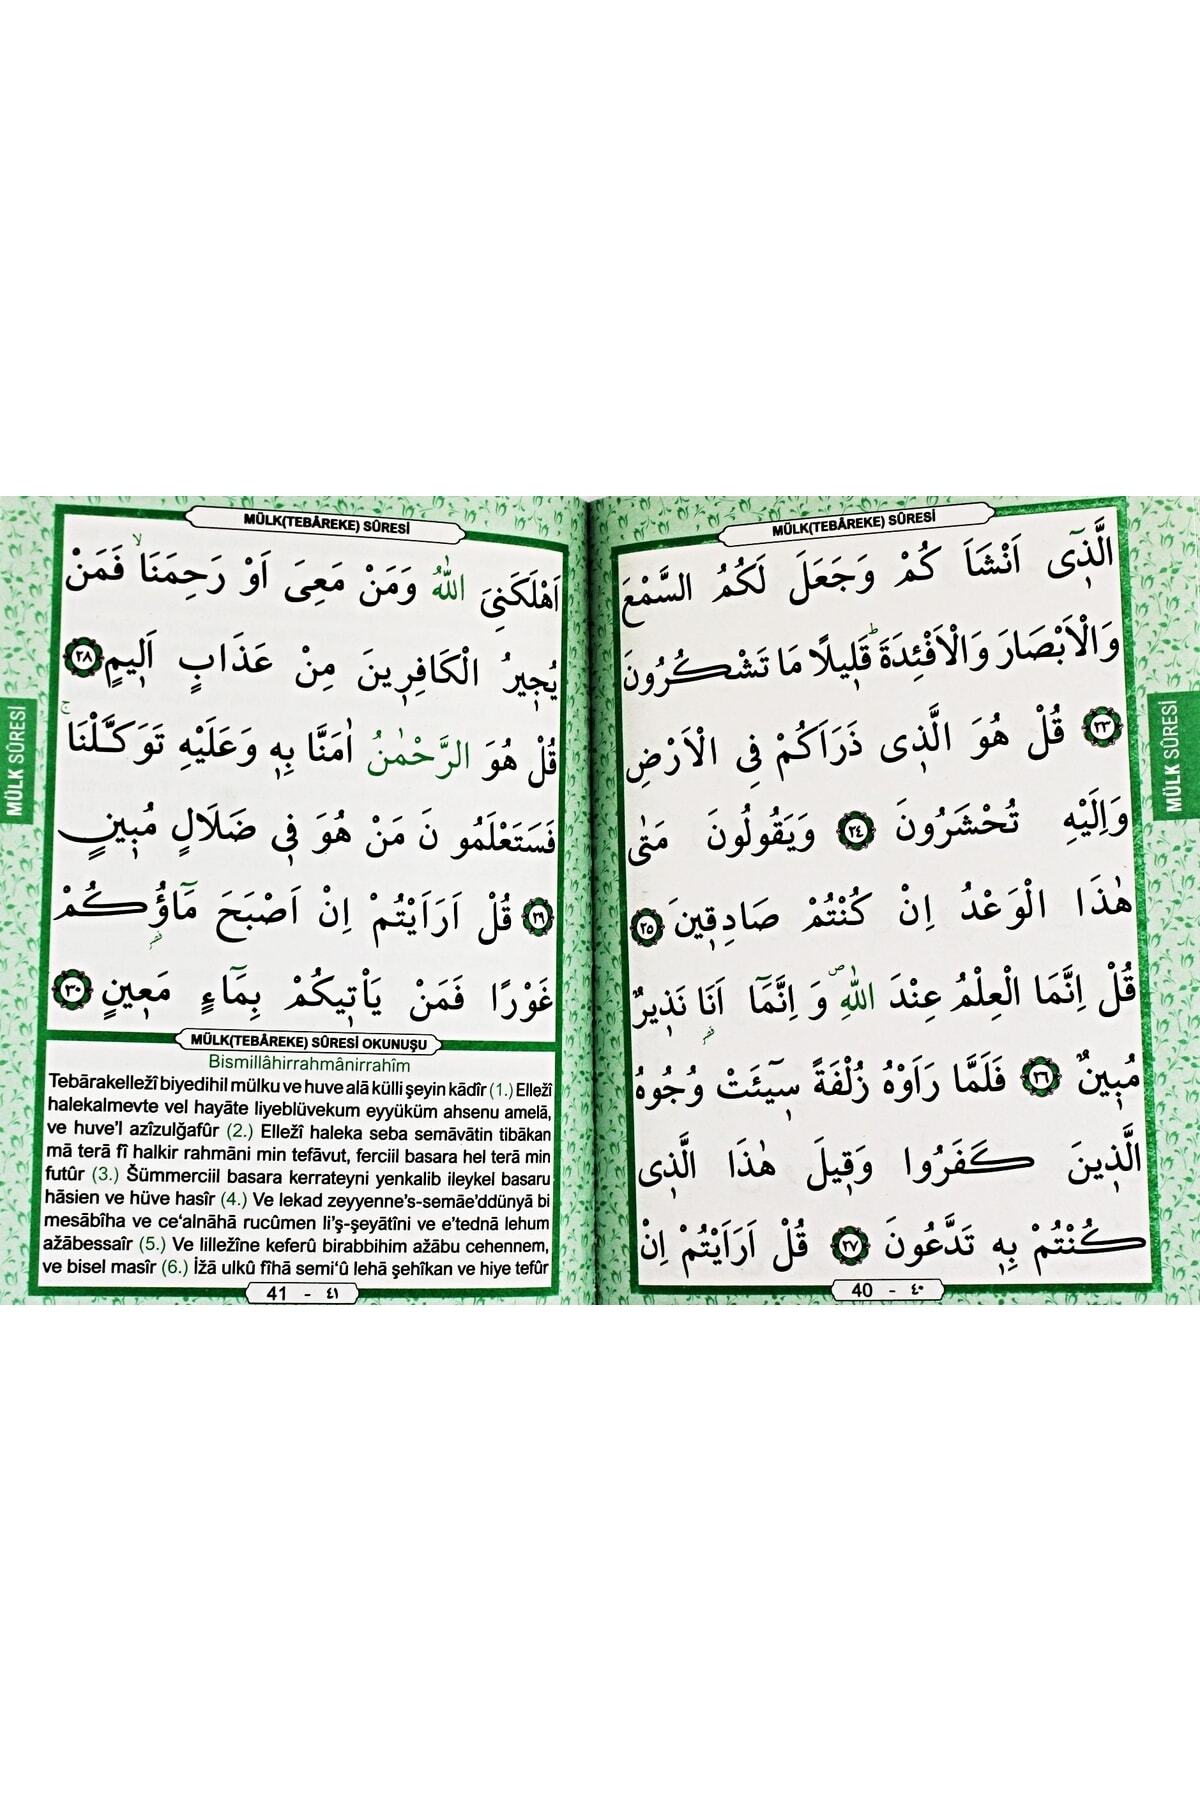 MÜLK(TEBÂREKE) SÛRESİ
الَّذ۪ٓى اَنْشَاَ كُمْ وَجَعَلَ لَكُمُ السَّمْعَ
وَالْاَبْصَارَ وَالْاَفْـِٕدَةَۜ قَل۪يلًا مَا تَشْكُرُونَ
﴿٢٣﴾ قُلْ هُوَ الَّذ۪ى ذَرَاَكُمْ فِى الْاَرْضِ
وَاِلَيْهِ تُحْشَرُونَ ﴿٢٤﴾ وَيَقُولُونَ مَتٰى
هٰذَا الْوَعْدُ اِنْ كُنْتُمْ صَادِق۪ينَ ﴿٢٥﴾
قُلْ اِنَّمَا الْعِلْمُ عِنْدَ اللّٰهِۖ وَ اِنَّمَٓا اَنَا۬ نَذ۪يرٌ
مُب۪ينٌ ﴿٢٦﴾ فَلَمَّا رَاَوْهُ زُلْفَةً س۪ٓيـَٔتْ وُجُوهُ
الَّذ۪ينَ كَفَرُوا وَق۪يلَ هٰذَا الَّذ۪ى
كُنْتُمْ بِه۪ تَدَّعُونَ ﴿٢٧﴾ قُلْ اَرَاَيْتُمْ اِنْ
40 - ٤٠
MÜLK SÛRESİ
MÜLK(TEBÂREKE) SÛRESİ
اَهْلَكَنِىَ اللّٰهُ وَمَنْ مَعِىَ اَوْ رَحِمَنَاۙ فَمَنْ
يُج۪يرُ الْكَافِر۪ينَ مِنْ عَذَابٍ اَل۪يمٍ ﴿٢٨﴾
قُلْ هُوَ الرَّحْمٰنُ اٰمَنَّا بِه۪ وَعَلَيْهِ تَوَكَّلْنَاۚ
فَسَتَعْلَمُو نَ مَنْ هُوَ ف۪ى ضَلَالٍ مُب۪ينٍ
﴿٢٩﴾ قُلْ اَرَاَيْتُمْ اِنْ اَصْبَحَ مَٓاؤُ۬كُمْ
غَوْرًا فَمَنْ يَاْت۪يكُمْ بِمَٓاءٍ مَع۪ينٍ ﴿٣٠﴾
MÜLK(TEBÂREKE) SÛRESİ OKUNUŞU
Bismillâhirrahmânirrahîm
Tebārakelležî biyedihil mülku ve huve alā külli şeyin kādîr (1.) Elležî
halekalmevte vel hayāte liyeblüvekum eyyüküm ahsenu amelā,
ve huve'l azîzulğafûr (2.) Elležî haleka seba semāvātin tibākan
mā terā fî halkir rahmāni min tefāvut, ferciil basara hel terā min
futûr (3.) Šümmerciil basara kerrateyni yenkalib ileykel basaru
hāsien ve hüve hasîr (4.) Ve lekad zeyyenne's-semāe'ddünyā bi
mesābîha ve ce'alnāhā rucûmen li'ş-şeyatîni ve e'tednā lehum
ažābessaîr (5.) Ve lilležîne keferû birabbihim ažābu cehennem,
ve bisel masîr (6.) İžā ulkû fîhā semi'û lehā şehîkan ve hiye tefûr
41 - ٤١
MÜLK SÛRESİ